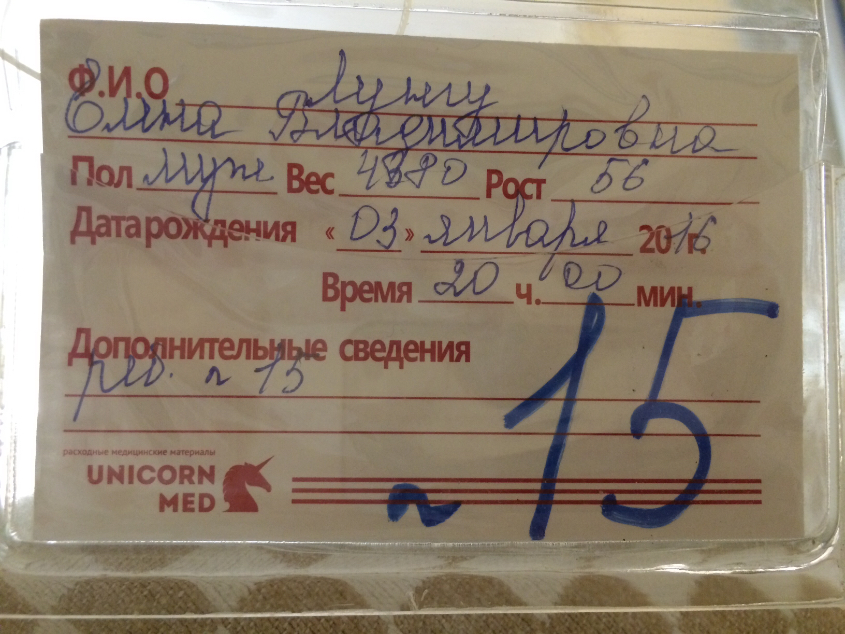 Ф.И.О Лунгу
Елена Владимировна
Пол муж Вес 4390 Рост 56
Дата рождения «03» января 2016 г.
Время 20 ч. 00 мин.
Дополнительные сведения
реб. ~ 15
расходные медицинские материалы
UNICORN
MED
~ 15